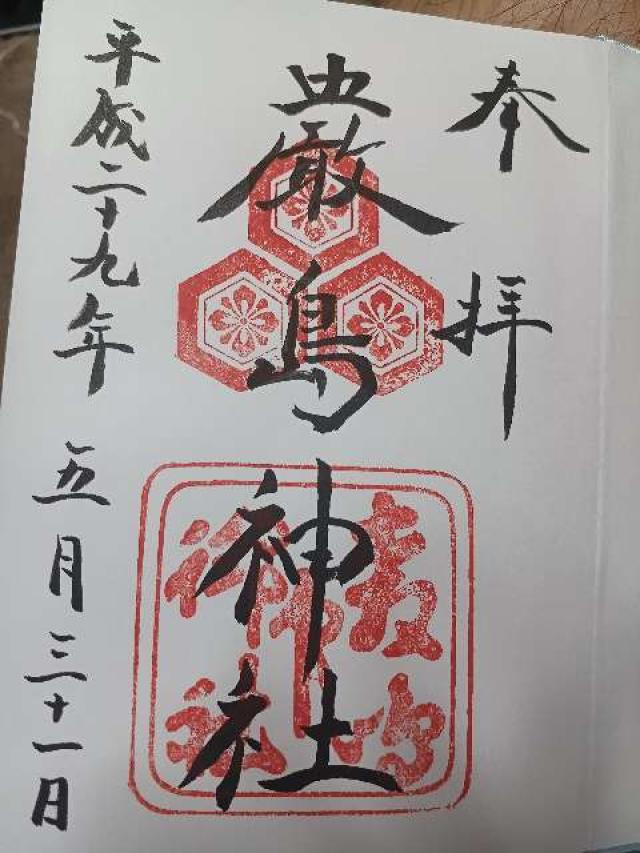 奉拝
厳島神社
平成二十九年五月三十一日